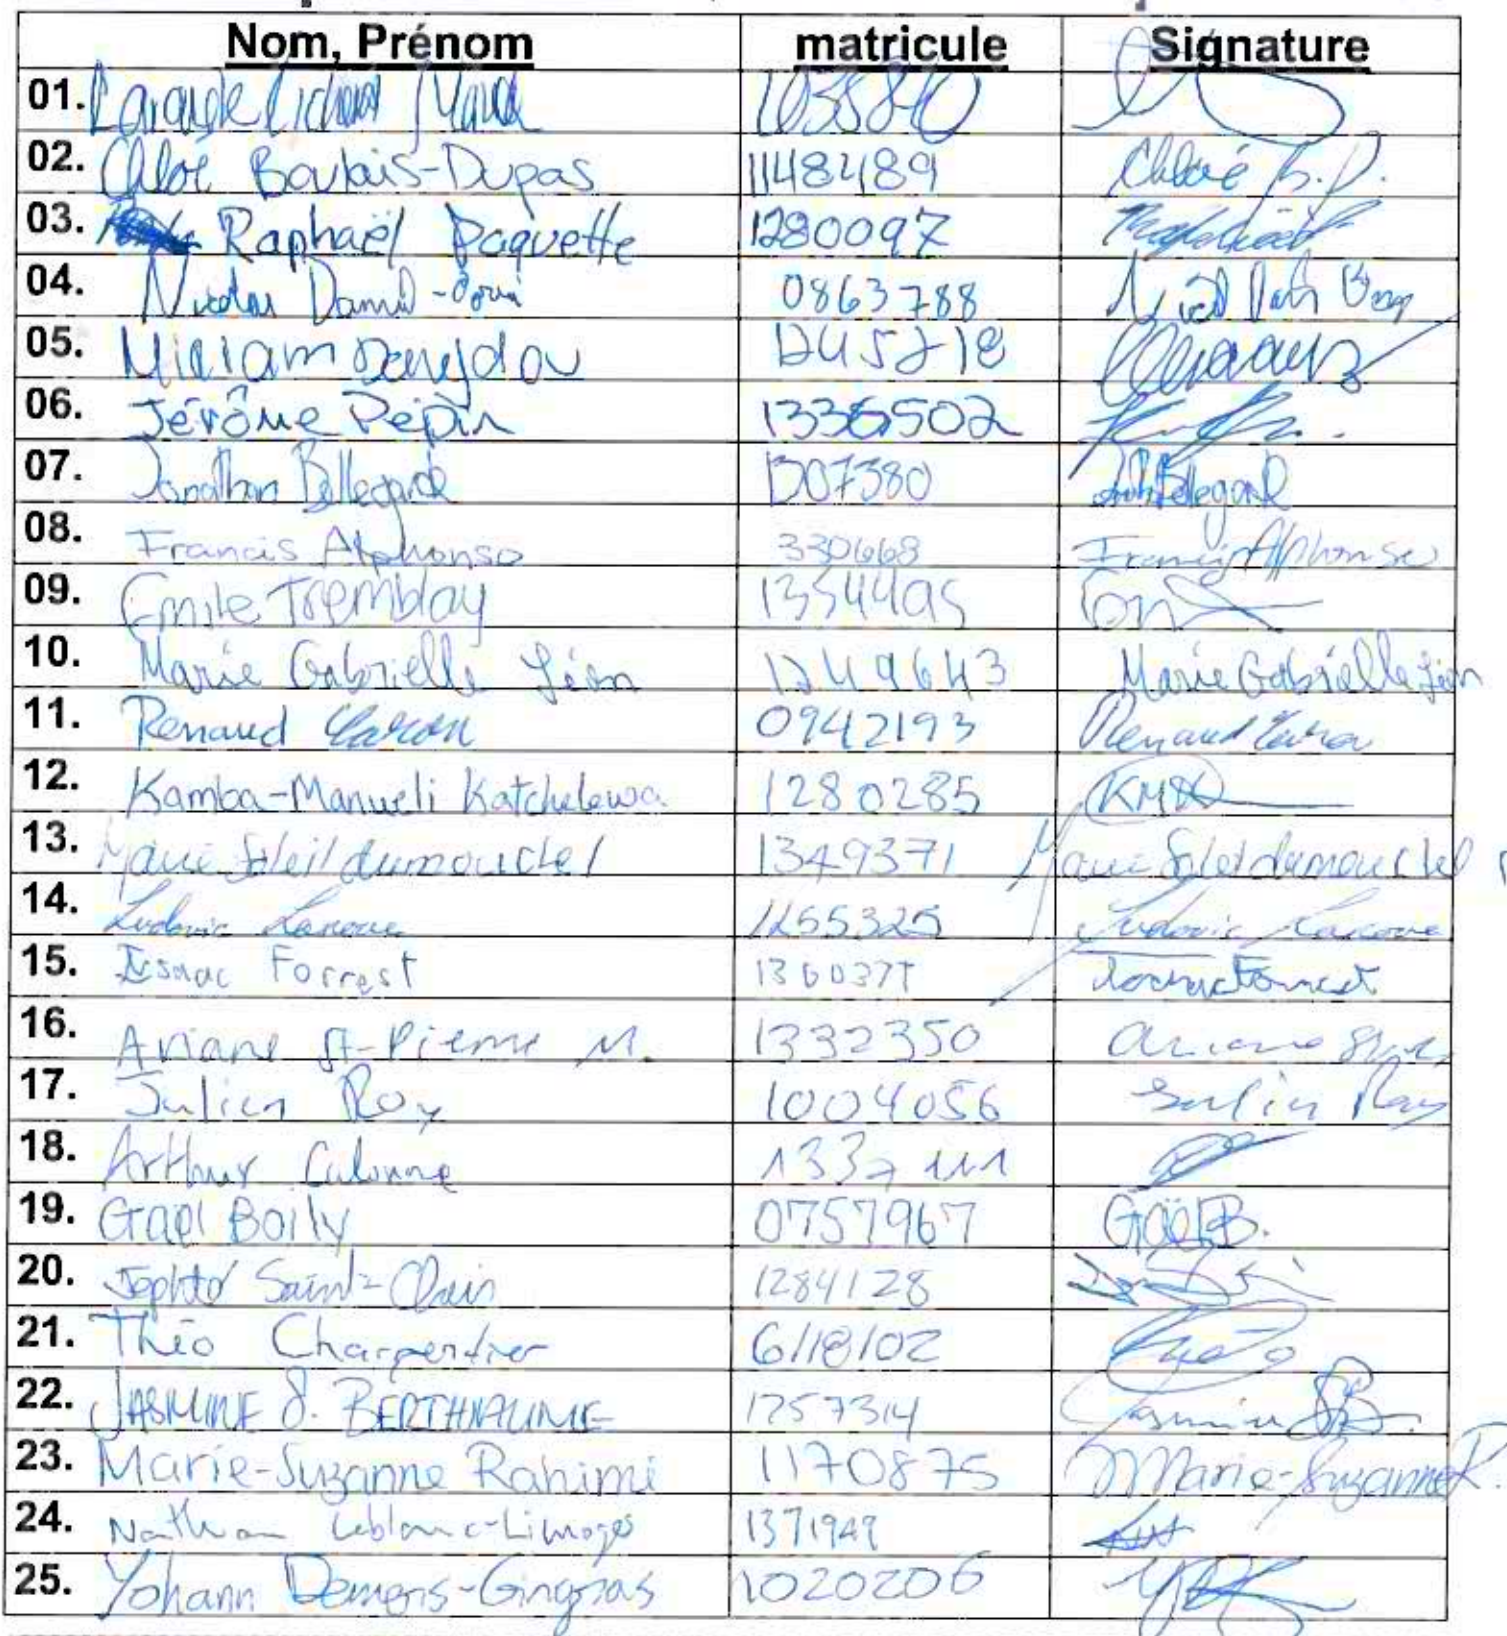 Nom, Prénom matricule Signature
01.
02. Chloé Boulais-Dupas 11484189 Chloé B.D.
03. Raphaël Paquette 1280097
04. Nicolas 0863788
05. Miriam
06. Jérôme Pépin 1336502
07. Jonathan Bellegarde 1307380
08. Francis Alphonse 330668 Francis Alphonse
09. Emile Tremblay 1354495
10. Marie Gabrielle Léon 1249643 Marie Gabrielle Léon
11. Renaud Caron 0942193 Renaud Caron
12. Kamba-Manueli Katchelewa 1280285 KMK
13. Marie Soleil dumouchel 1349371 Marie Soleil dumouchel
14. Ludovic 1255325 Ludovic
15. Isaac Forrest 1360377
16. Ariane St-Pierre M. 1332350 Ariane
17. Julien Roy 1004056 Julien Roy
18. Arthur Calonne 1337111
19. Gael Boily 0757967 Gaël B.
20. Jephté Saint- 1284128
21. Théo Charpentier 6118102
22. JASMINE S. BERTHIAUME 1257314 Jasmine SB
23. Marie-Suzanne Rahimi 1170875 Marie-Suzanne R.
24. Nathan Leblanc-Limoges 1371949
25. Yohann Demers-Gingras 1020206